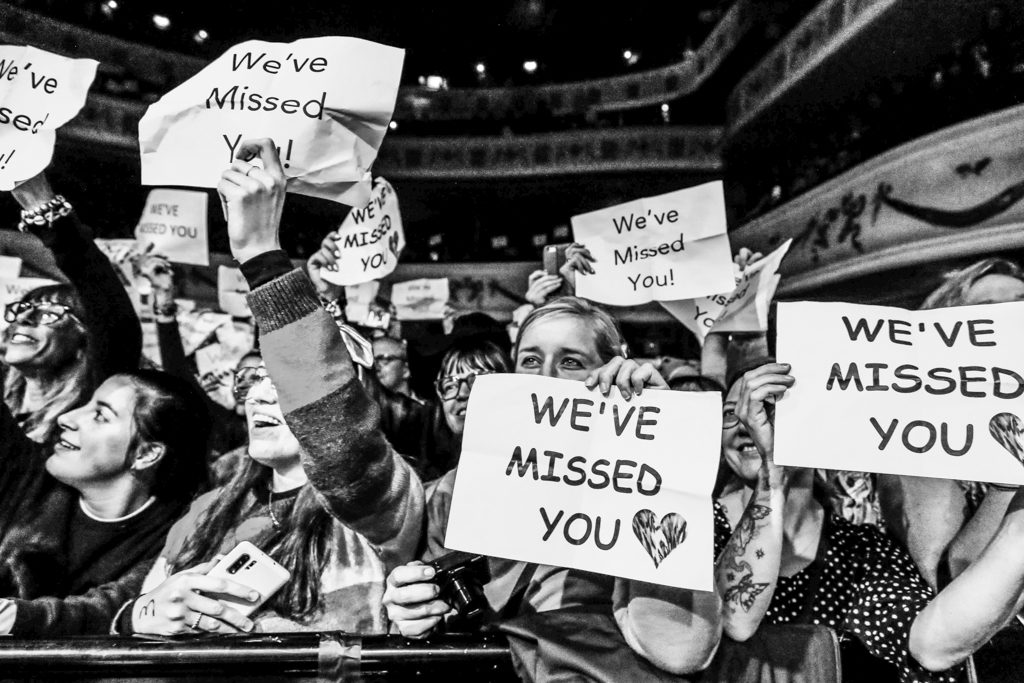 We've
Missed
You!
We've
sed
!
WE'VE
MISSED YOU
WE'VE
MISSED
YOU
We've
Missed
You!
WE'VE
MISSED
YOU
WE'VE
MISSED
YOU